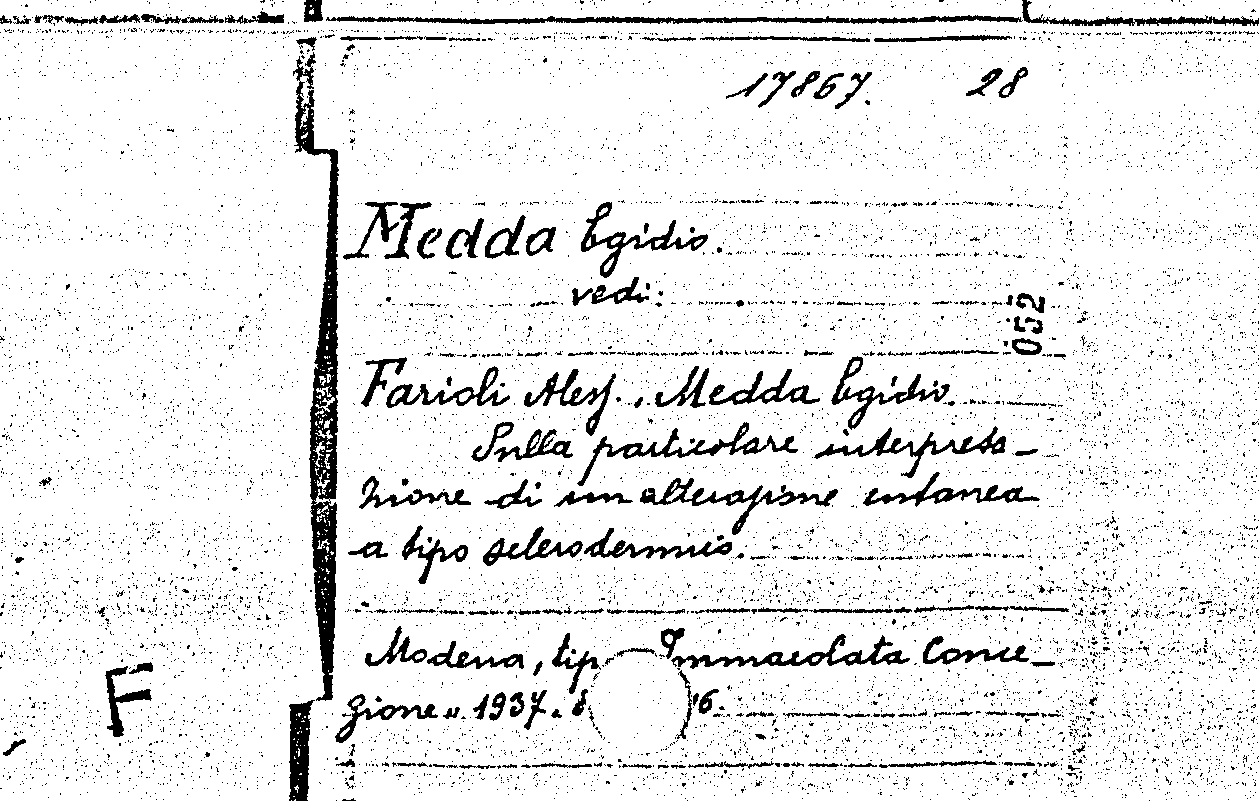 17867. 28
Medda Egidio.
vedi:
052
Farioli Aless., Medda Egidio.
Sulla particolare interpreta-
zione di un alterazione cutanea
a tipo sclerodermico.
Modena, tip. Immacolata Conce-
zione". 1937. 8 16.
F